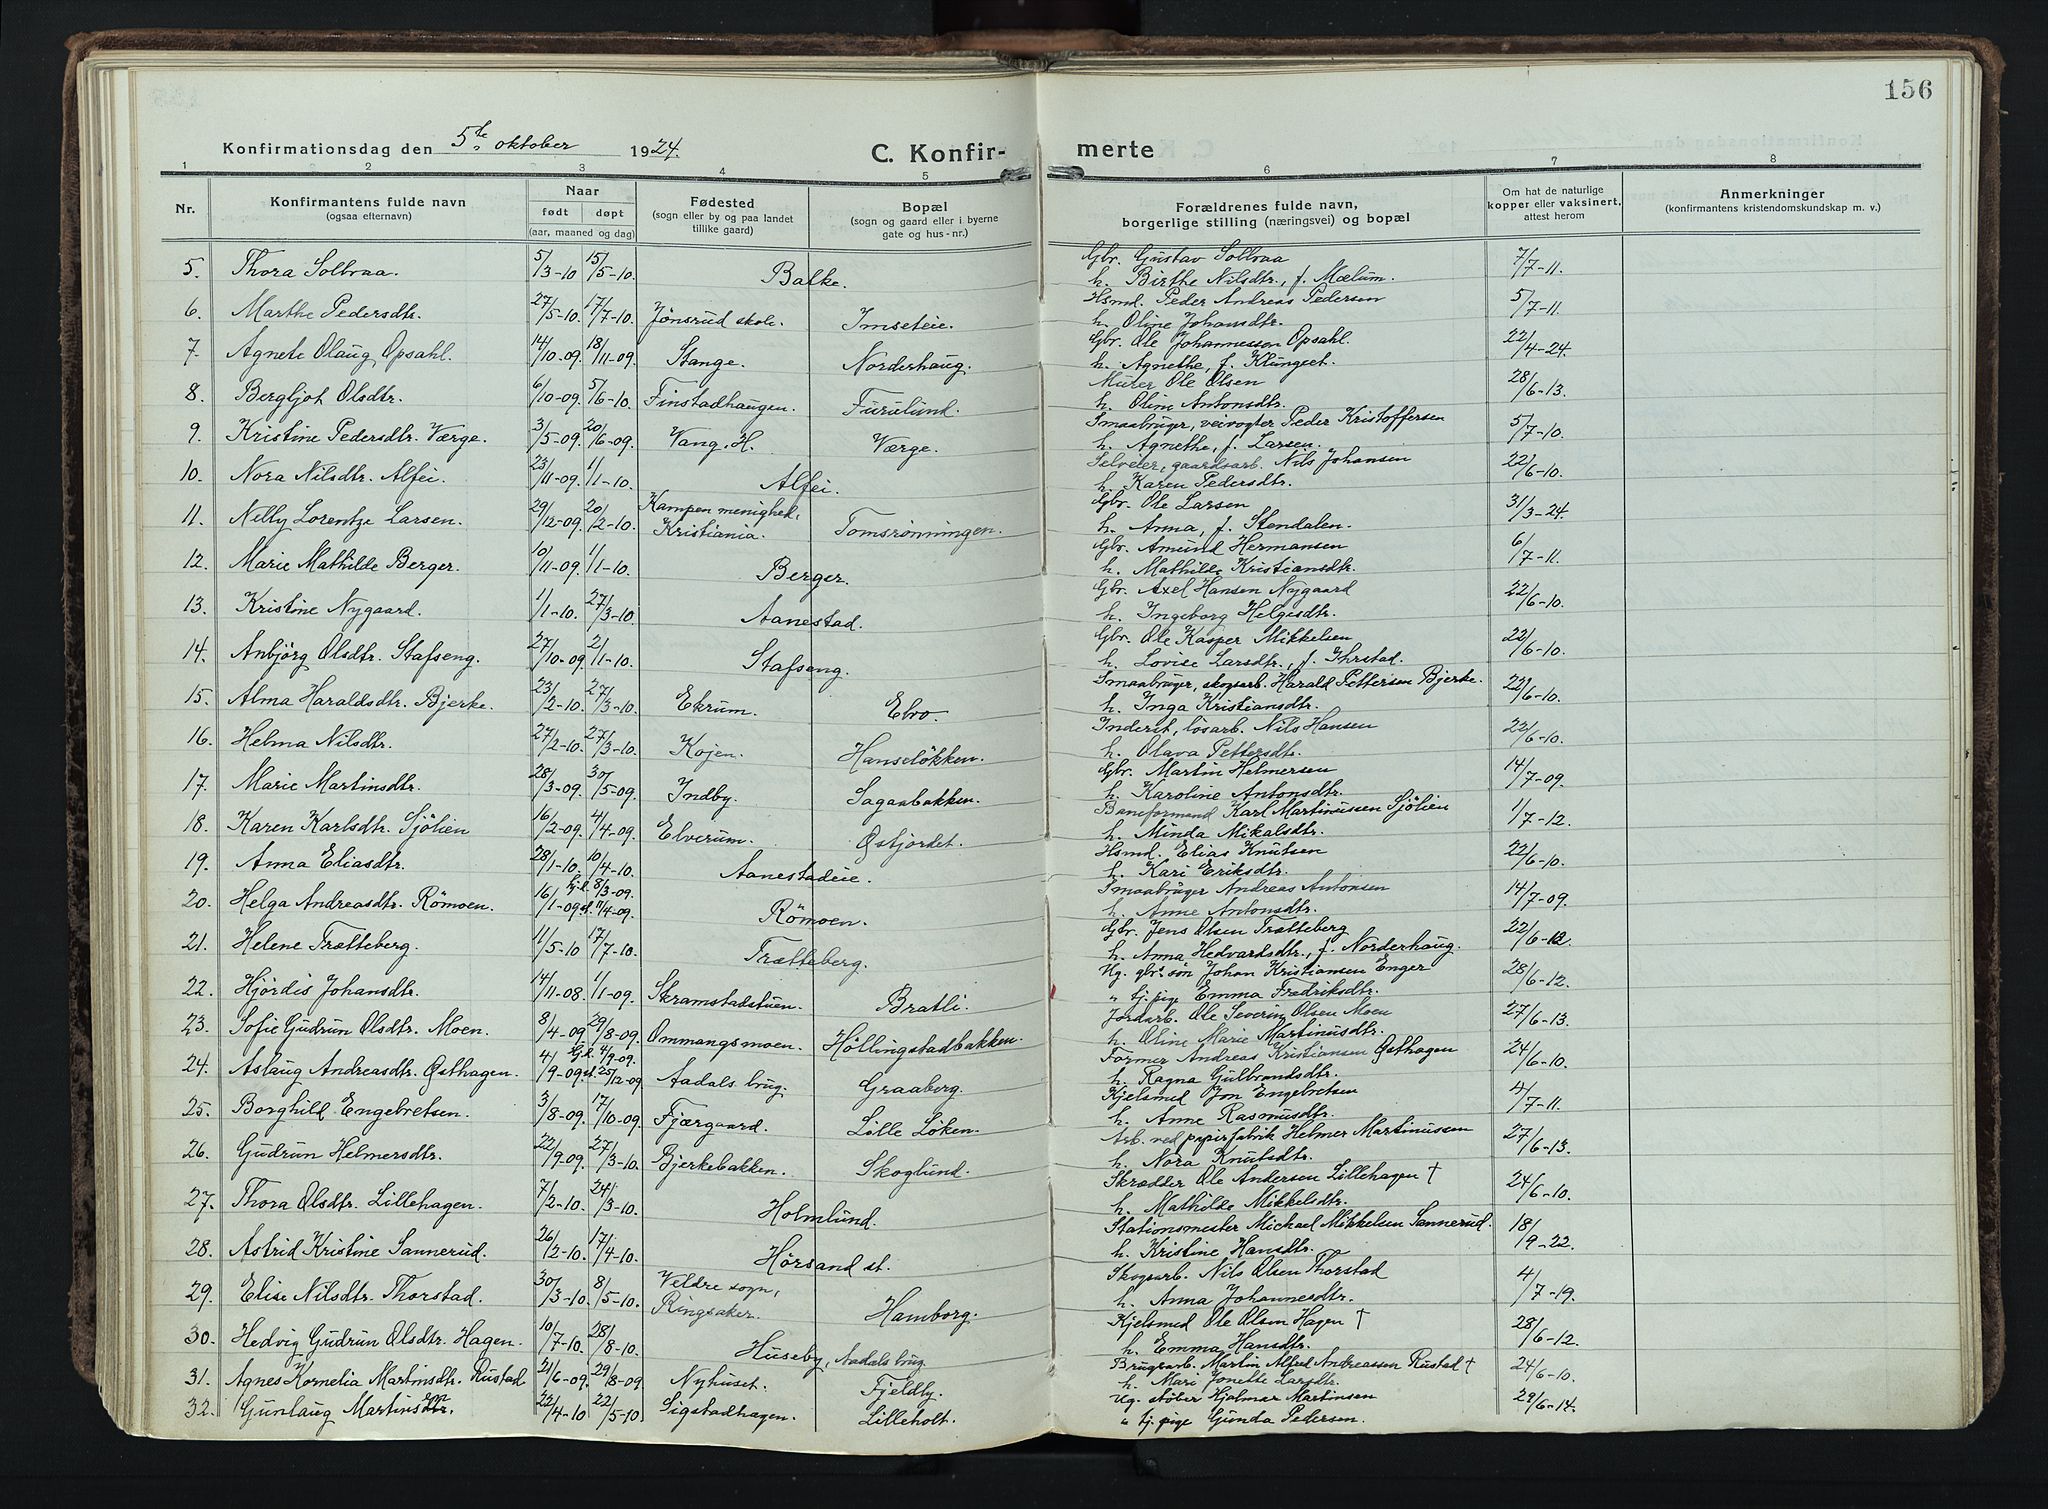 156
Konfirmationsdag den 5te oktober 1924.
C. Konfir- merte
1 2 3 4 5 6 7 8
Nr. | Konfirmantens fulde navn (ogsaa efternavn) | Naar født døpt (aar, maaned og dag) | Fødested (sogn eller by og paa landet tillike gaard) | Bopæl (sogn og gaard eller i byerne gate og hus-nr.) | Forældrenes fulde navn, borgerlige stilling (næringsvei) og bopæl | Om hat de naturlige kopper eller vaksinert, attest herom | Anmerkninger (konfirmantens kristendomskundskap m. v.)
5. Thora Solbraa. 5/3-10 15/5-10. Balke. Gbr. Gustav Solbraa 7/7-11.
h. Birthe Nilsdtr., f. Mælum.
6. Marthe Pedersdtr. 27/5-10. 17/7-10. Jønsrud skole. Imseteie. Hsmd. Peder Andreas Pedersen 5/7-11.
h. Oline Johansdtr.
7. Agnete Olaug Opsahl. 14/10-09. 18/11-09. Stange. Norderhaug. Gbr. Ole Johannessen Opsahl. 22/4-24.
h. Agnethe, f. Klungset.
8. Bergljot Olsdtr. 6/10-09. 5/6-10. Finstadhaugen. Furulund. Murer Ole Olsen 28/6-13.
h. Oline Antonsdtr.
9. Kristine Pedersdtr. Værge. 3/5-09. 20/6-09. Vang, H. Værge. Smaabruger, veivogter Peder Kristoffersen 5/7-10.
h. Agnethe, f. Larsen.
10. Nora Nilsdtr. Alfei. 23/11-09. 1/1-10. Alfei. Selveier, gaardsarb. Nils Johansen 22/6-10.
h. Karen Pedersdtr.
11. Nelly Lorentze Larsen. 29/12-09. 20/2-10. Kampen menighed, Kristiania. Tomsrønningen. Gbr. Ole Larsen 31/3-24.
h. Anna, f. Stendalen.
12. Marie Mathilde Berger. 10/11-09. 1/1-10. Berger. Gbr. Amund Hermansen 6/7-11.
h. Mathilde Kristiansdtr.
13. Kristine Nygaard. 1/1-10. 27/3-10. Aanestad. Gbr. Axel Hansen Nygaard 22/6-10.
h. Ingeborg Helgesdtr.
14. Anbjörg Olsdtr. Stafseng. 27/10-09. 2/1-10. Stafseng. Gbr. Ole Kasper Mikkelsen 22/6-10.
h. Lovise Larsdtr., f. Ihrstad.
15. Alma Haraldsdtr. Bjerke. 23/2-10. 27/3-10. Ekrum. Ebro. Smaabruger, skogsarb. Harald Pettersen Bjerke. 22/6-10.
h. Inga Kristiansdtr.
16. Helma Nilsdtr. 27/2-10. 27/3-10. Kojen. Hanselökken. Inderst, løsarb. Nils Hansen 22/6-10.
h. Olava Pettersdtr.
17. Marie Martinsdtr. 28/3-09. 30/5-09. Indby. Sagaabakken. Gbr. Martin Helmersen 14/7-09.
h. Karoline Antonsdtr.
18. Karen Karlsdtr. Sjölien 16/2-09. 4/4-09. Elverum. Østjordet. Baneformand Karl Martinussen Sjölien 1/7-12.
h. Minda Mikalsdtr.
19. Anna Eliasdtr. 28/1-10. 10/4-10. Aanestadeie. Hsmd. Elias Knutsen 22/6-10.
h. Kari Eriksdtr.
20. Helga Andreasdtr. Römoen. 16/1-09. 8/3-09. 11/4-09. Römoen. Smaabruger Andreas Antonsen 14/7-09.
h. Anne Antonsdtr.
21. Helene Trætteberg. 11/5-10 17/7-10. Trætteberg. Gbr. Jens Olsen Trætteberg 22/6-12.
h. Anna Hedvardsdtr., f. Norderhaug.
22. Hjördis Johansdtr. 14/11-08. 1/1-09. Skramstadstuen. Bratli. Ug. gbr.s søn Johan Kristiansen Enger 28/6-12.
" tj.pige Emma Fredriksdtr.
23. Sofie Gudrun Olsdtr. Moen. 8/4-09. 29/8-09. Ommangsmoen. Höllingstadbakken. Jordarb. Ole Severin Olsen Moen 27/6-13.
h. Oline Marie Martinusdtr.
24. Aslaug Andreasdtr. Østhagen. 4/9-09. 4/9-09. 25/12-09 Aadals brug. Graaberg. Former Andreas Kristiansen Østhagen 24/6-10.
h. Ragna Gulbrandsdtr.
25. Borghild Engebretsen. 3/8-09. 17/10-09. Fjærgaard. Lille Løken. Kjelsmed Jon Engebretsen 4/7-11.
h. Anne Rasmusdtr.
26. Gudrun Helmersdtr. 22/9-09. 27/3-10. Bjerkebakken. Skoglund. Arb. ved papirfabrik Helmer Martinussen 27/6-13.
h. Nora Knutsdtr.
27. Thora Olsdtr. Lillehagen. 7/2-10. 24/3-10. Holmlund. Skrædder Ole Andersen Lillehagen † 24/6-10.
h. Mathilde Mikkelsdtr.
28. Astrid Kristine Sannerud. 26/2-10. 17/4-10. Hörsand st. Stationsmester Michael Mikkelsen Sannerud. 18/9-22.
h. Kristine Hansdtr.
29. Elise Nilsdtr. Thorstad. 30/3-10. 8/5-10. Veldre sogn, Ringsaker. Hamborg. Skogsarb. Nils Olsen Thorstad 4/7-19.
h. Anna Johannesdtr.
30. Hedvig Gudrun Olsdtr. Hagen. 10/7-10. 28/8-10. Huseby, Aadals brug. Kjelsmed Ole Olsen Hagen † 28/6-12.
h. Emma Hansdtr.
31. Agnes Kornelia Martinsdtr. Rustad 21/6-09. 29/8-09 Nyhuset. Fjeldby. Brugsarb. Martin Alfred Andreassen Rustad † 24/6-10.
h. Mari Jonette Larsdtr.
32. Gunlaug Martinsdtr. 22/4-10 22/5-10 Sigstadhagen. Lilleholt. Ug. støber Hjalmar Martinsen 29/6-14.
" tj. pige Gunda Pedersen.